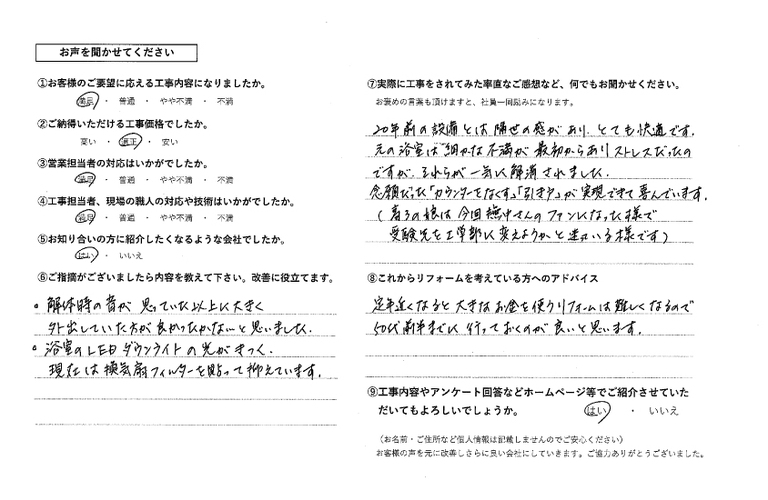 お声を聞かせてください
①お客様のご要望に応える工事内容になりましたか。
満足 ・ 普通 ・ やや不満 ・ 不満
②ご納得いただける工事価格でしたか。
高い ・ 適正 ・ 安い
③営業担当者の対応はいかがでしたか。
満足 ・ 普通 ・ やや不満 ・ 不満
④工事担当者、現場の職人の対応や技術はいかがでしたか。
満足 ・ 普通 ・ やや不満 ・ 不満
⑤お知り合いの方に紹介したくなるような会社でしたか。
はい ・ いいえ
⑥ご指摘がございましたら内容を教えて下さい。改善に役立てます。
。解体時の音が思っていた以上に大きく
外出していた方が良かったかないと思いました.
。浴室のLEDダウンライトの光がきつく.
現在は換気扇フィルターを貼って抑えています.
⑦実際に工事をされてみた率直なご感想など、何でもお聞かせください。
お褒めの言葉も頂けますと、社員一同励みになります。
20年前の設備とは隔世の感があり、とても快適です.
元の浴室は細かな不満が最初からありストレスだったの
ですが、それらが一気に解消されました.
念願だった「カウンターをなくす」「引き戸」が実現できて喜んでいます.
の娘は今回 中さんのファンになった様で
受験先を工学部に変えようかと迷っている様です)
⑧これからリフォームを考えている方へのアドバイス
定年近くなると大きなお金を使うリフォームは難しくなるので
50代前半までに行っておくのが良いと思います.
⑨工事内容やアンケート回答などホームページ等でご紹介させていた
だいてもよろしいでしょうか。 はい ・ いいえ
（お名前・ご住所など個人情報は記載しませんのでご安心ください）
お客様の声を元に改善しさらに良い会社にしていきます。ご協力ありがとうございました。